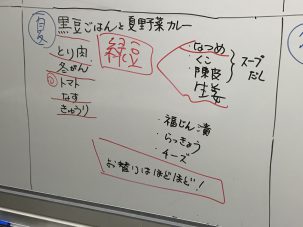 黒豆ごはんと夏野菜カレー
とり肉
冬がん
トマト
なす
きゅうり
緑豆
なつめ
くこ
陳皮
生姜
スープ
だし
・福じん漬
・らっきょう
・チーズ
お替りはほどほど!